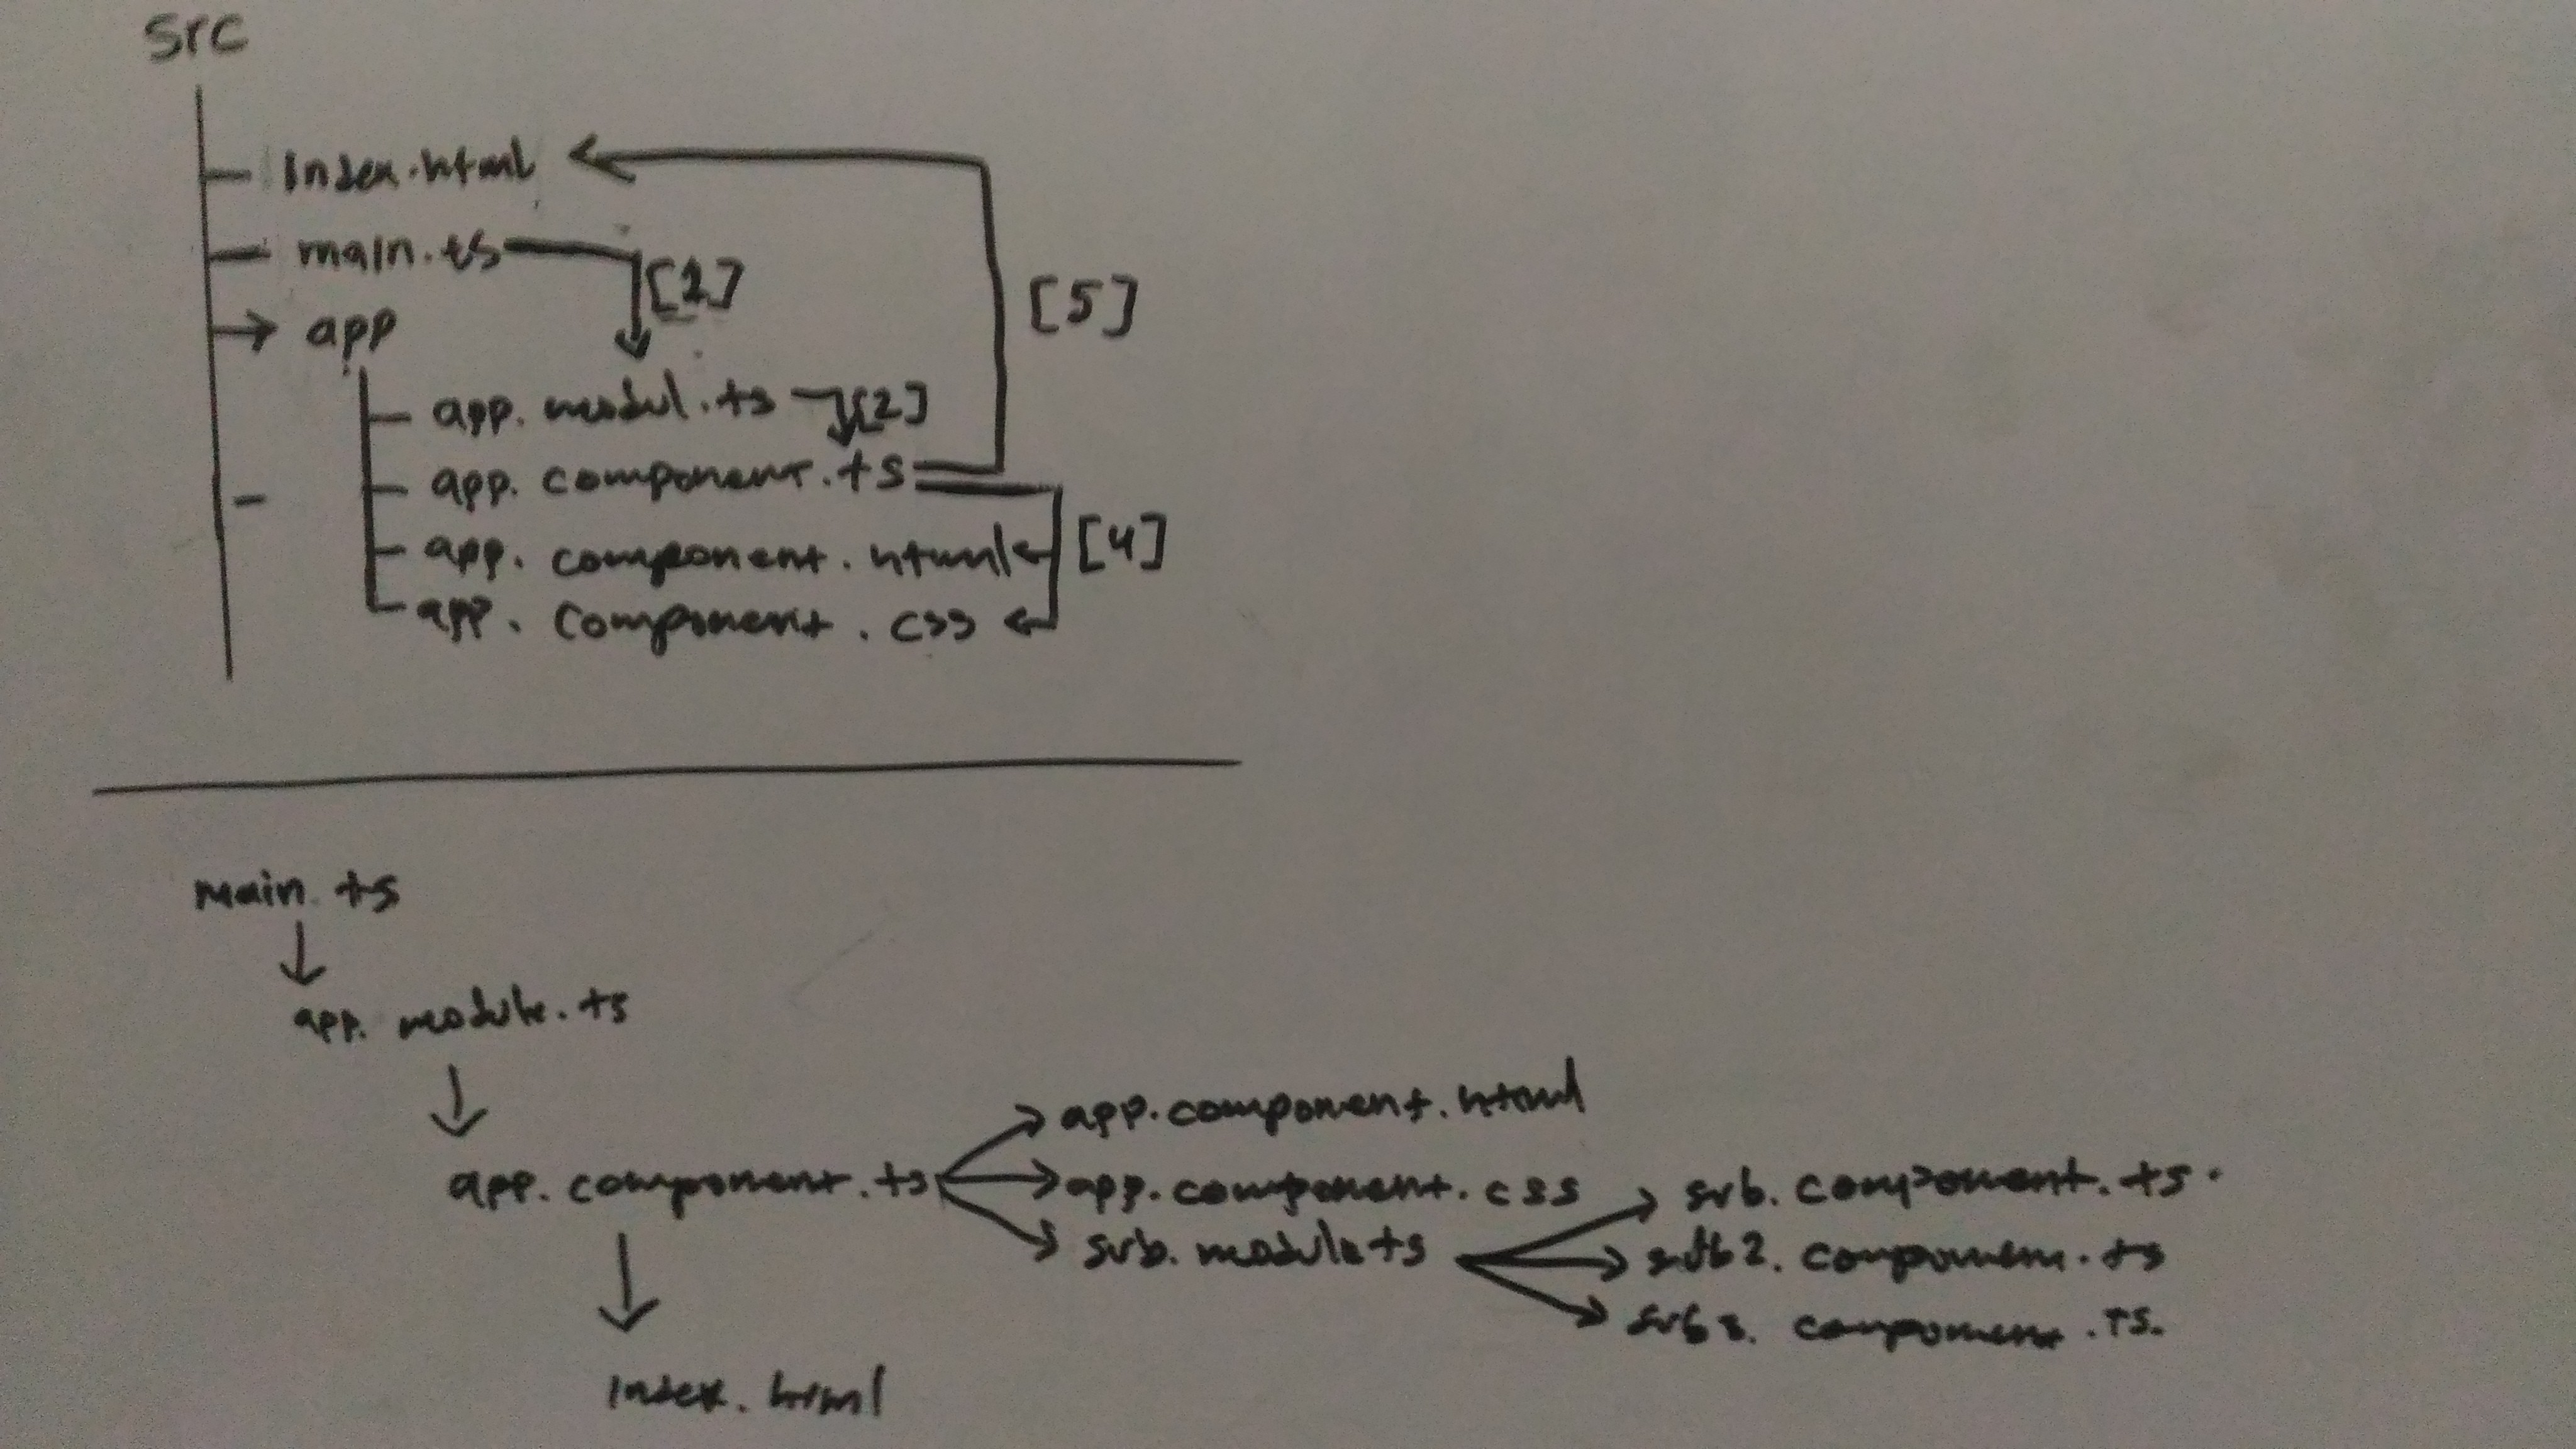 src
index.html
main.ts
[1]
app
[5]
app.modul.ts [2]
app.component.ts
app.component.html [4]
app.component.css
main.ts
app.module.ts
app.component.html
app.component.ts
app.component.css
sub.component.ts.
sub.module ts
sub2.component.ts
component.ts.
index.html